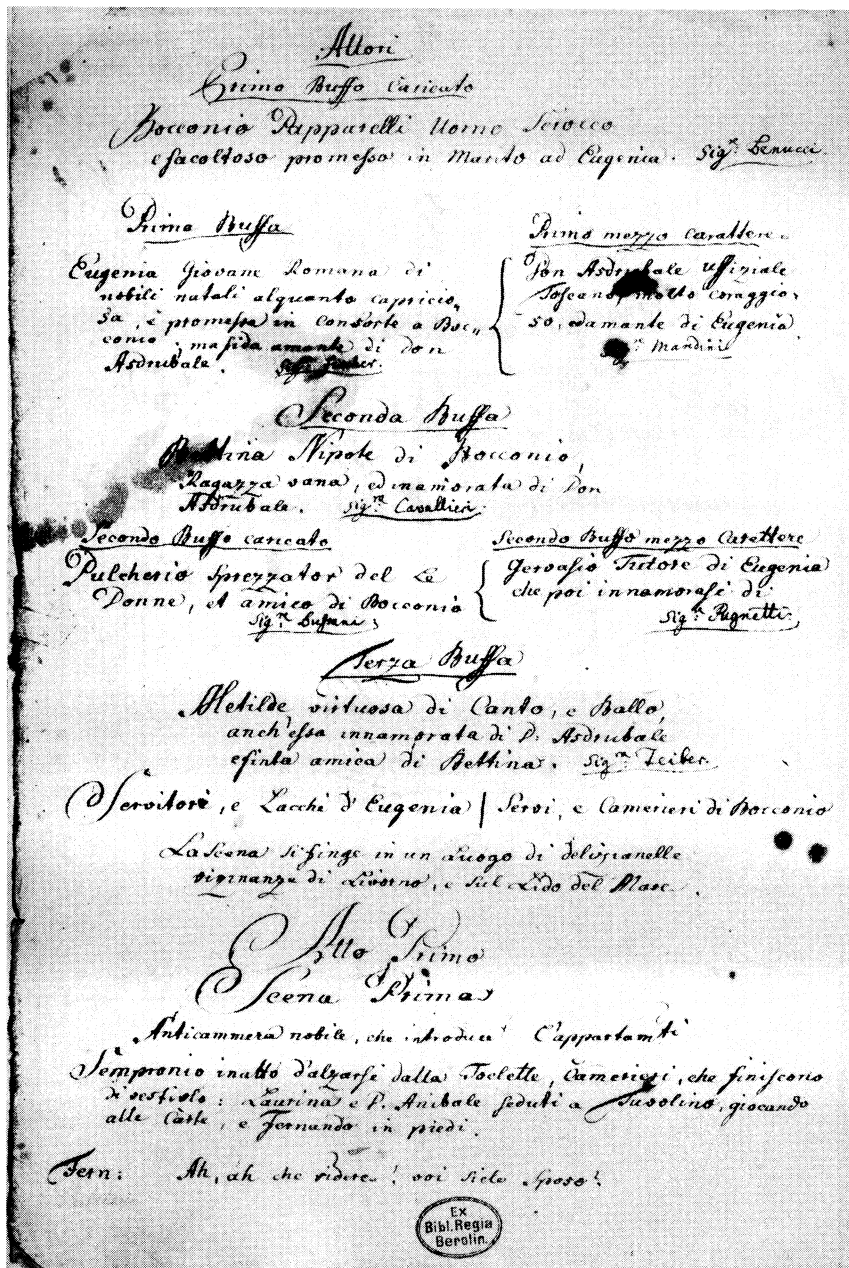 Attori
Primo Buffo Caricato
Bocconio Papparelli Uomo Sciocco
e facoltoso promesso in Marito ad Eugenia. Sigre Benucci
Prima Buffa
Eugenia Giovane Romana di
nobili natali alquanto capricio„
sa, è promessa in consorte a Boc„
conio; ma fida amante di Don
Asdrubale.
Primo mezzo carattere.
Don Asdrubale uffiziale
Toscano, molto coraggio„
so, ed amante di Eugenia
Mandini
Seconda Buffa
Bettina Nipote di Bocconio,
Ragazza vana, ed inamorata di Don
Asdrubale. Sigra Cavallieri
Secondo Buffo caricato
Pulcherio Sprezzator del Le
Donne, et amico di Bocconio
Sigre Bussani
Secondo Buffo mezzo Carettere
Gervasio Tutore di Eugenia
che poi innamorasi di
Sigre Pugnetti.
Terza Buffa
Metilde virtuosa di Canto, e Ballo,
anch'essa innamorata di D. Asdrubale
e finta amica di Bettina. Sigra Teiber.
Servitori, e Lacchè d'Eugenia / Servi, e Camerieri di Bocconio
La scena si finge in un Luogo di delizia nelle
vicinanze di Livorno, e sul Lido del Mare.
Atto Primo
Scena Prima
Anticammera nobile, che introduce
Sempronio in atto d'alzarsi dalla Toelette, Camerieri, che finiscono
di vestirlo: Laurina e D. Anibale seduti a Tavolino, giocando
alle Carte, e Fernando in piedi.
Fern: Ah, ah che ridere! voi siete Sposo!
Ex
Bibl. Regia
Berolin.